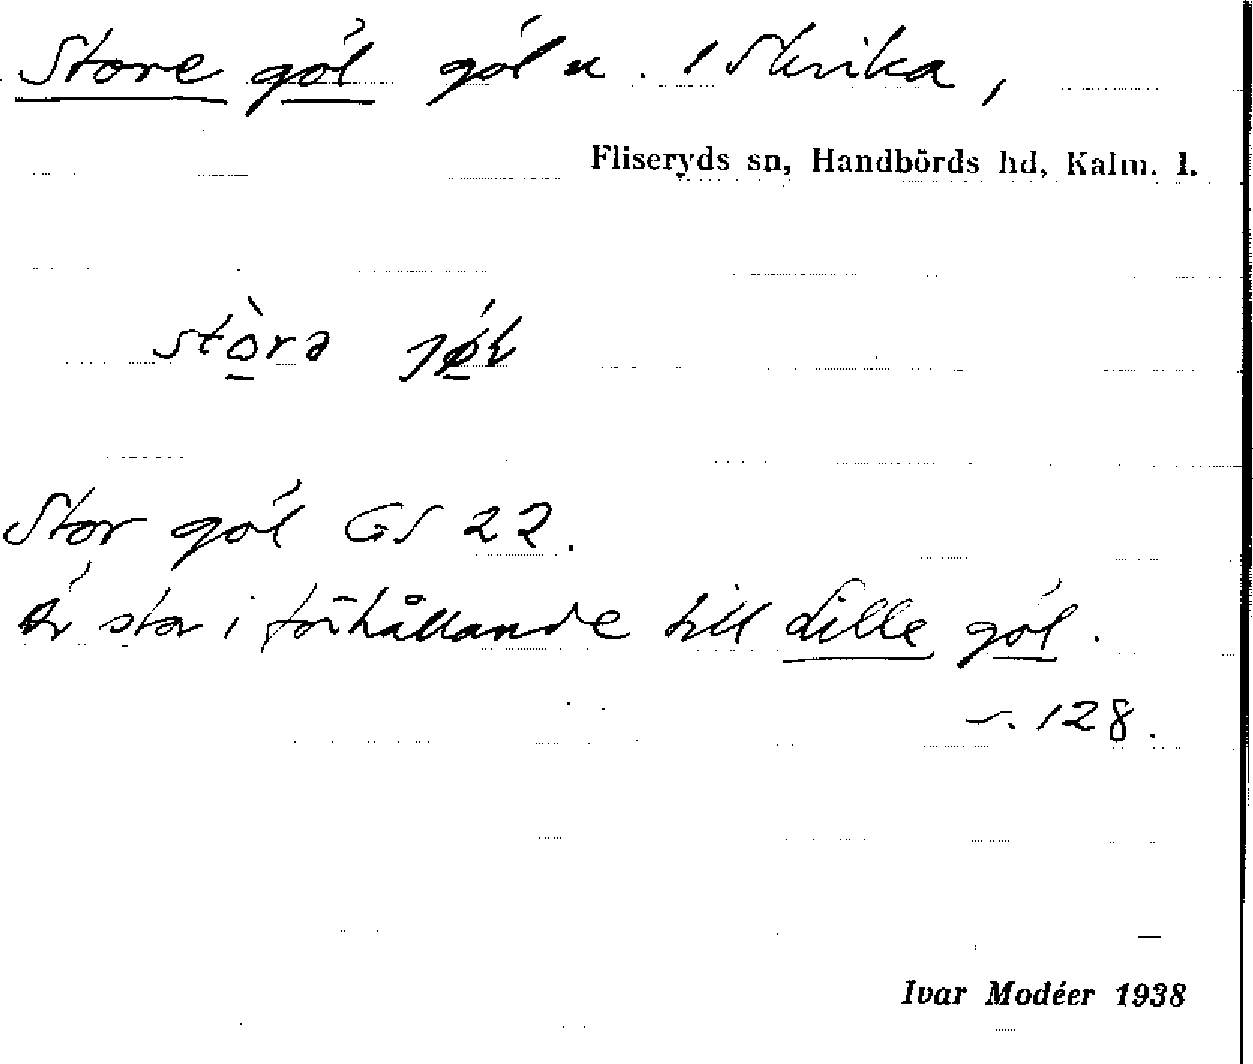 Store göl göl u. 1 Skrika,
Fliseryds sn, Handbörds hd, Kalm. l.
stòrə
Stor göl GS 22.
Är stor i förhållande till Lille göl.
s. 128.
Ivar Modéer 1938